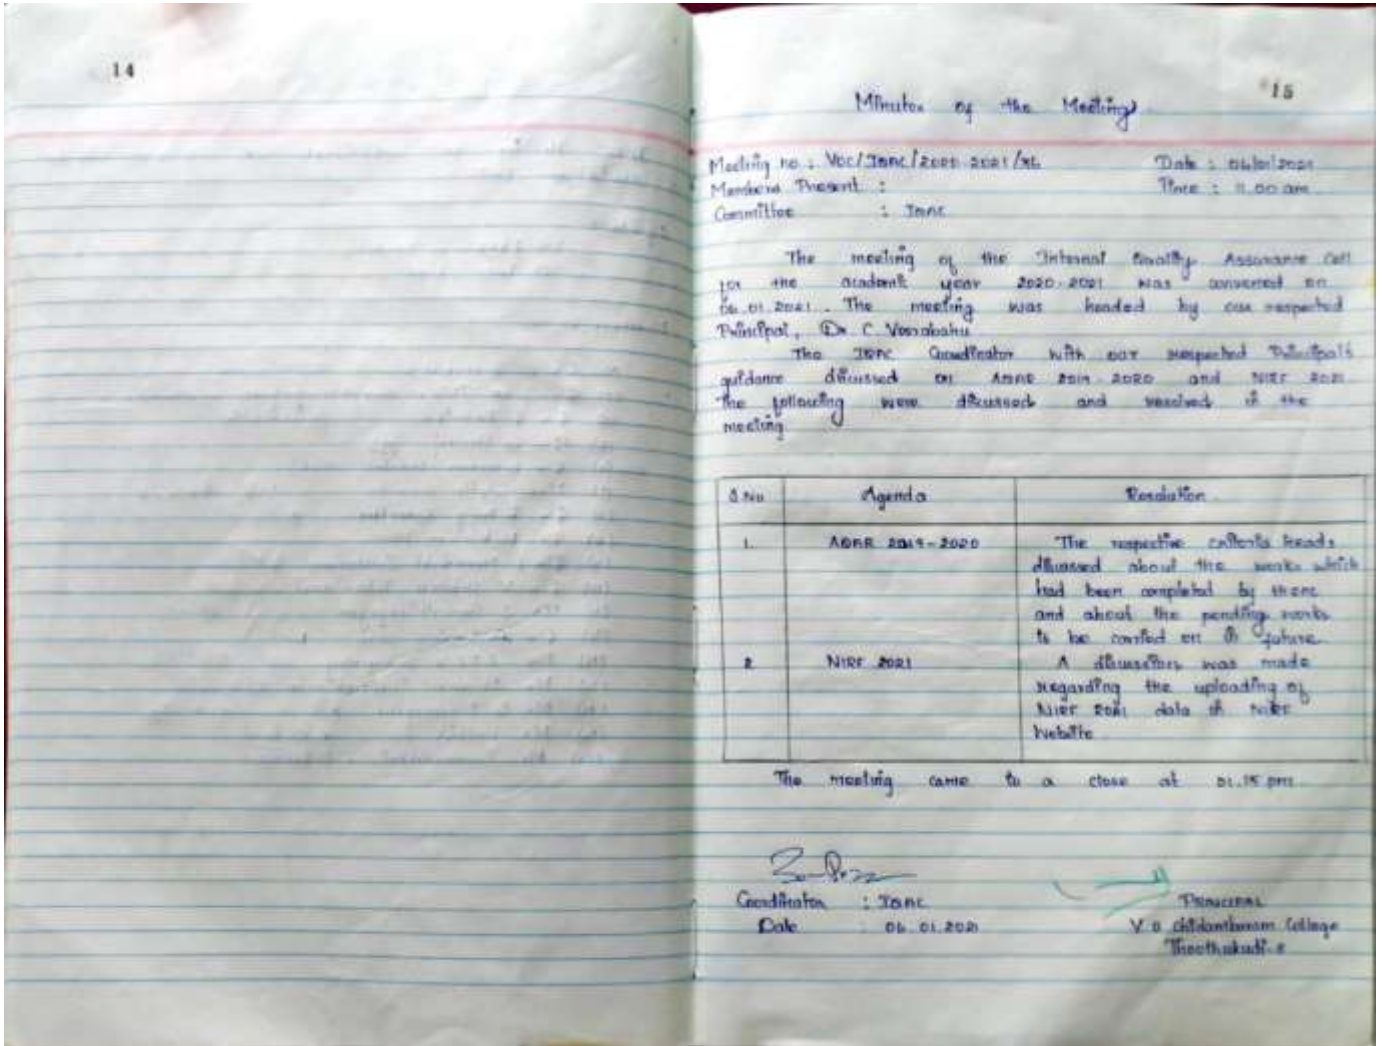 14
15
Minutes of the Meeting
Meeting no : VOC/IQAC/2020-2021/
Date : 06/01/2021
Members Present :
Time : 11.00 am
Committee : IQAC
The meeting of the Internal Quality Assurance Cell
for the academic year 2020-2021 was convened on
06.01.2021. The meeting was headed by our respected
Principal, Dr. C. Veerabahu
The IQAC Coordinator with our respected Principal's
guidance discussed on AQAR 2019-2020 and NIRF 2021
The following were discussed and resolved in the
meeting
S.No
Agenda
Resolution
1.
AQAR 2019-2020
The respective criteria heads
discussed about the works which
had been completed by them
and about the pending works
to be carried on in future
2
NIRF 2021
A discussion was made
regarding the uploading of
NIRF 2021 data in NIRF
Website
The meeting came to a close at 01.15 pm
Coordinator : IQAC
PRINCIPAL
Date : 06.01.2021
V.O Chidambaram College
Thoothukudi-8